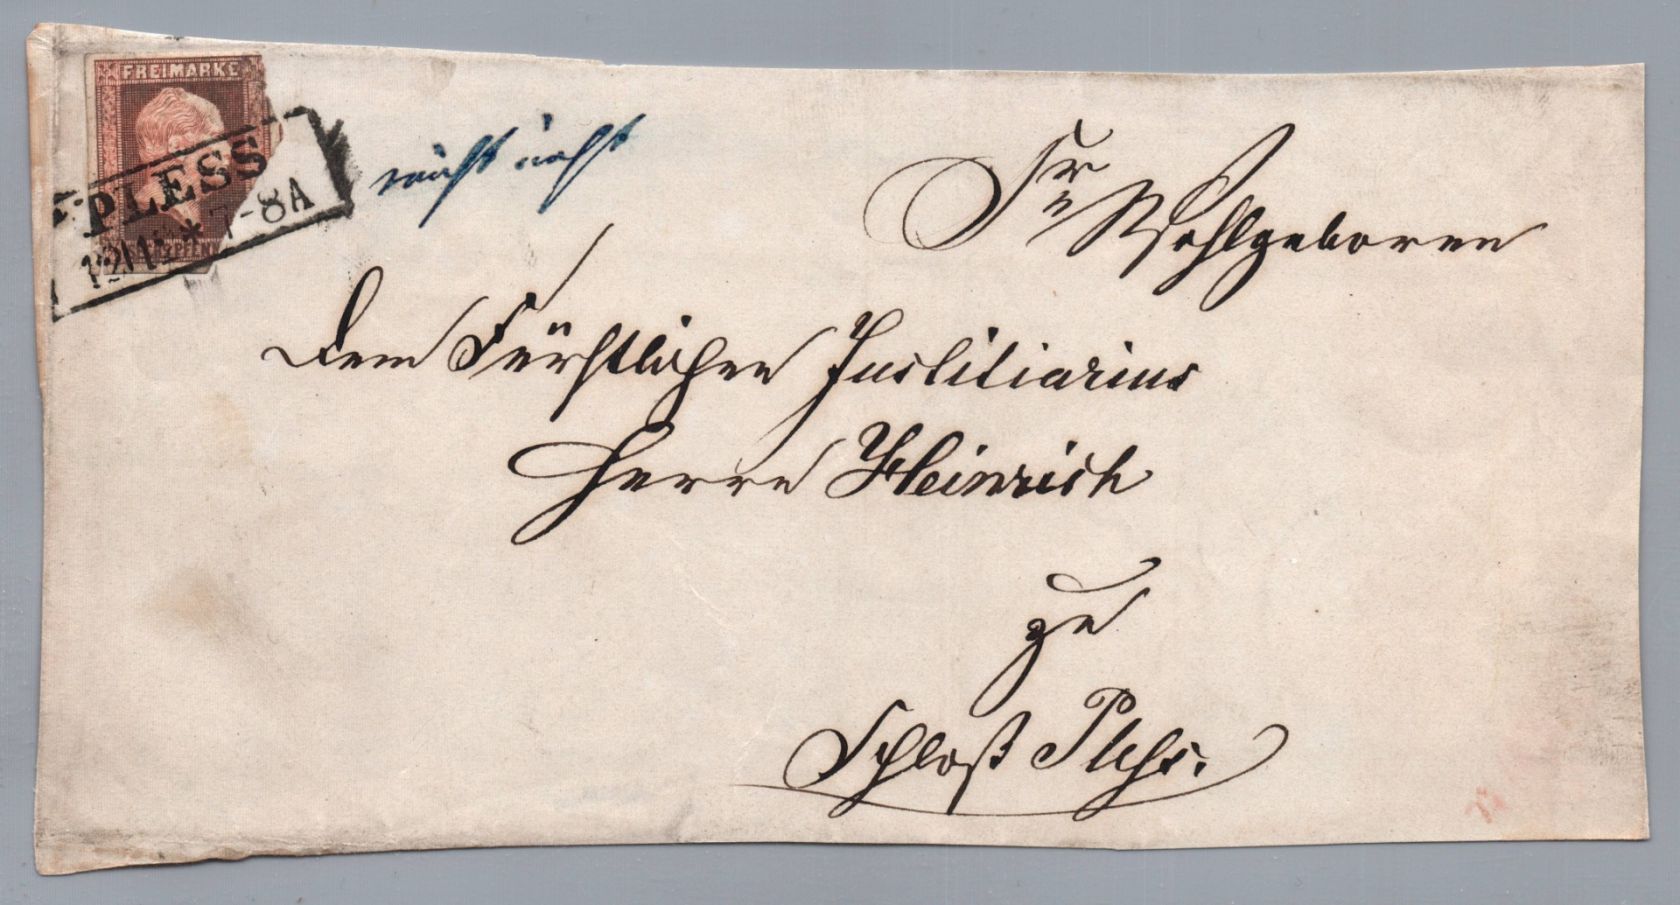 FREIMARKE
PLESS
12 11 * 7-8A
PFENN
nicht echt
Sr Wohlgeboren
dem Fürstlichen Justitiarius
Herrn Heinrich
zu
Schloß Pleß.